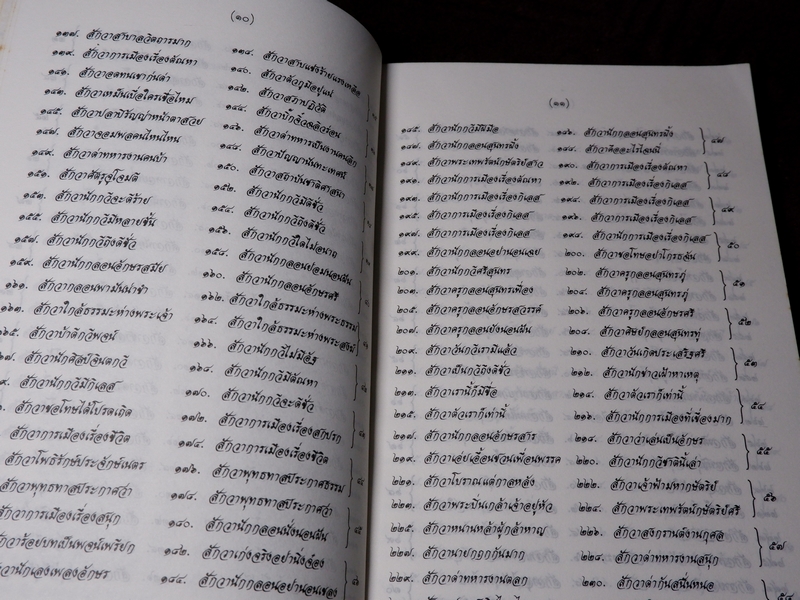 (๑๐)
๑๓๗. สักวาสาบาลวิตถารมาก
๑๓๘. สักวาสาบแช่งร้ายแรงเหลือ
๑๓๙. สักวาการเมืองเรื่องตัณหา
๑๔๐. สักวาตัวกูมีอยู่แน่
๑๔๑. สักวาอดทนเขาก่นด่า
๑๔๒. สักวาสภาปฏิวัติ
๑๔๓. สักวาเหม็นเบื่อใครเชื่อไหม
๑๔๕. สักวาปลาปิรัญญาหน้าตาสวย
๑๔๖. สักวาด่าทหารเป็นงานคนลิก
๑๔๗. สักวาจอมพลคนไหนไหน
๑๔๘. สักวาปัญญานันทะเทศน์
๑๔๙. สักวาด่าทหารงานคนบ้า
๑๕๐. สักวาสถาบันชาติศาสนา
๑๕๑. สักวาศัตรูจู่โจมตี
๑๕๒. สักวานักกวีมีดีชั่ว
๑๕๓. สักวานักกวีจะดีร้าย
๑๕๔. สักวานักกวีถึงดีชั่ว
๑๕๕. สักวานักกวีมีหลายชั้น
๑๕๖. สักวานักกวีใดไม่อนาถ
๑๕๗. สักวานักกวีถึงดีชั่ว
๑๕๘. สักวานักกลอนย่อมนอนฝัน
๑๕๙. สักวานักกลอนอักษรสมัย
๑๖๐. สักวานักกลอนอักษรศรี
๑๖๑. สักวากลอนพาฝันน่าขำ
๑๖๒. สักวาใกล้ธรรมะห่างพระธรรม
๑๖๓. สักวาใกล้ธรรมะห่างพระเจ้า
๑๖๔. สักวาใกล้ธรรมะห่างพระสงฆ์
๑๖๕. สักวาบ้าดีกวีพจน์
๑๖๖. สักวานักกวีไม่มีอัฐ
สักวานักศิลป์จินตกวี
๑๖๘. สักวานักกวีมีตัณหา
สักวานักกวีมีกิเลส
๑๗๐. สักวานักกวีจะดีชั่ว
สักวาขอโทษได้โปรดเถิด
๑๗๒. สักวาการเมืองเรื่องสกปรก
สักวาการเมืองเรื่องชีวิต
๑๗๔. สักวาการเมืองเรื่องชีวิต
สักวาโพธิรักษ์ประจักษ์เนตร
๑๗๖. สักวาพุทธทาสประกาศธรรม
สักวาพุทธทาสประกาศว่า
๑๗๘. สักวาพุทธทาสประกาศว่า
สักวาการเมืองเรื่องสนุก
๑๘๐. สักวานักกลอนนั่งนอนฝัน
สักวาร้อยบทเป็นพจน์เพรียก
๑๘๒. สักวาเก่งจริงอย่านิ่งจ้อง
วานักเลงเพลงอักษร
๑๘๔. สักวานักกลอนอย่านอนเขลง
(๑๑)
๑๘๕. สักวานักกวีมีฝีมือ
๑๘๖. สักวานักกลอนสุนทรผึ้ง
๑๘๗. สักวานักกลอนสุนทรผึ้ง
๑๘๘. สักวาคืออะไรไฉนนี่
๔๗
๑๘๙. สักวาพระเทพรัตน์กษัตริย์สาว
๑๙๐. สักวาการเมืองเรื่องตัณหา
๑๙๑. สักวานักการเมืองเรื่องตัณหา
๑๙๒. สักวาการเมืองเรื่องกิเลส
๔๘
๑๙๓. สักวานักการเมืองเรื่องกิเลส
๑๙๔. สักวาการเมืองเรื่องกิเลส
๑๙๕. สักวาการเมืองเรื่องกิเลส
๑๙๖. สักวาการเมืองเรื่องกิเลส
๔๙
๑๙๗. สักวาการเมืองเรื่องกิเลส
๑๙๘. สักวานักการเมืองเรื่องกิเลส
๑๙๙. สักวานักกลอนอย่านอนเฉย
๒๐๐. สักวาขอโทษอย่าโกรธฉัน
๕๐
๒๐๑. สักวานักกวีศรีสุนทร
๒๐๒. สักวาครูกลอนสุนทรภู่
๒๐๓. สักวาครูกลอนสุนทรเฟื่อง
๒๐๔. สักวาครูกลอนสุนทรภู่
๕๑
๒๐๕. สักวาครูกลอนอักษรสวรรค์
๒๐๖. สักวาครูกลอนอักษรศรี
๒๐๗. สักวาครูกลอนยังนอนฝัน
๒๐๘. สักวาศิษย์กลอนสุนทรทู่
๕๒
๒๐๙. สักวาวันกวีเรามีแล้ว
๒๑๐. สักวาวันเกิดประเสริฐศรี
๒๑๑. สักวาเป็นกวีถึงดีชั่ว
๒๑๒. สักวานักข่าวเฝ้าหาเหตุ
๕๓
๒๑๓. สักวาเรานี้ก็มีชื่อ
๒๑๔. สักวาตัวเราก็เท่านี้
๒๑๕. สักวาตัวเราก็เท่านี้
๒๑๖. สักวานักการเมืองที่เขื่องมาก
๕๔
๒๑๗. สักวานักกลอนอักษรสาร
๒๑๘. สักวาว่าเล่นเป็นอักษร
๒๑๙. สักวาเอ่ยเอื้อนชวนเพื่อนพรรค
๒๒๐. สักวานักกวีชาตินี้เล่า
๕๕
๒๒๑. สักวาโบราณแต่กาลหลัง
๒๒๒. สักวาเจ้าฟ้ามหากษัตริย์
๒๒๓. สักวาพระปิ่นเกล้าเจ้าอยู่หัว
๒๒๔. สักวาพระเทพรัตน์กษัตริย์ศรี
๕๖
๒๒๕. สักวาหนานหล้าผู้กล้าหาญ
๒๒๖. สักวาสงกรานต์งานกุศล
๒๒๗. สักวานายกถกกันมาก
๒๒๘. สักวาด่าทหารงานสนุก
๕๗
๒๒๙. สักวาด่าทหารงานตลก
๒๓๐. สักวาด่ากันสนั่นหนอ
๕๘